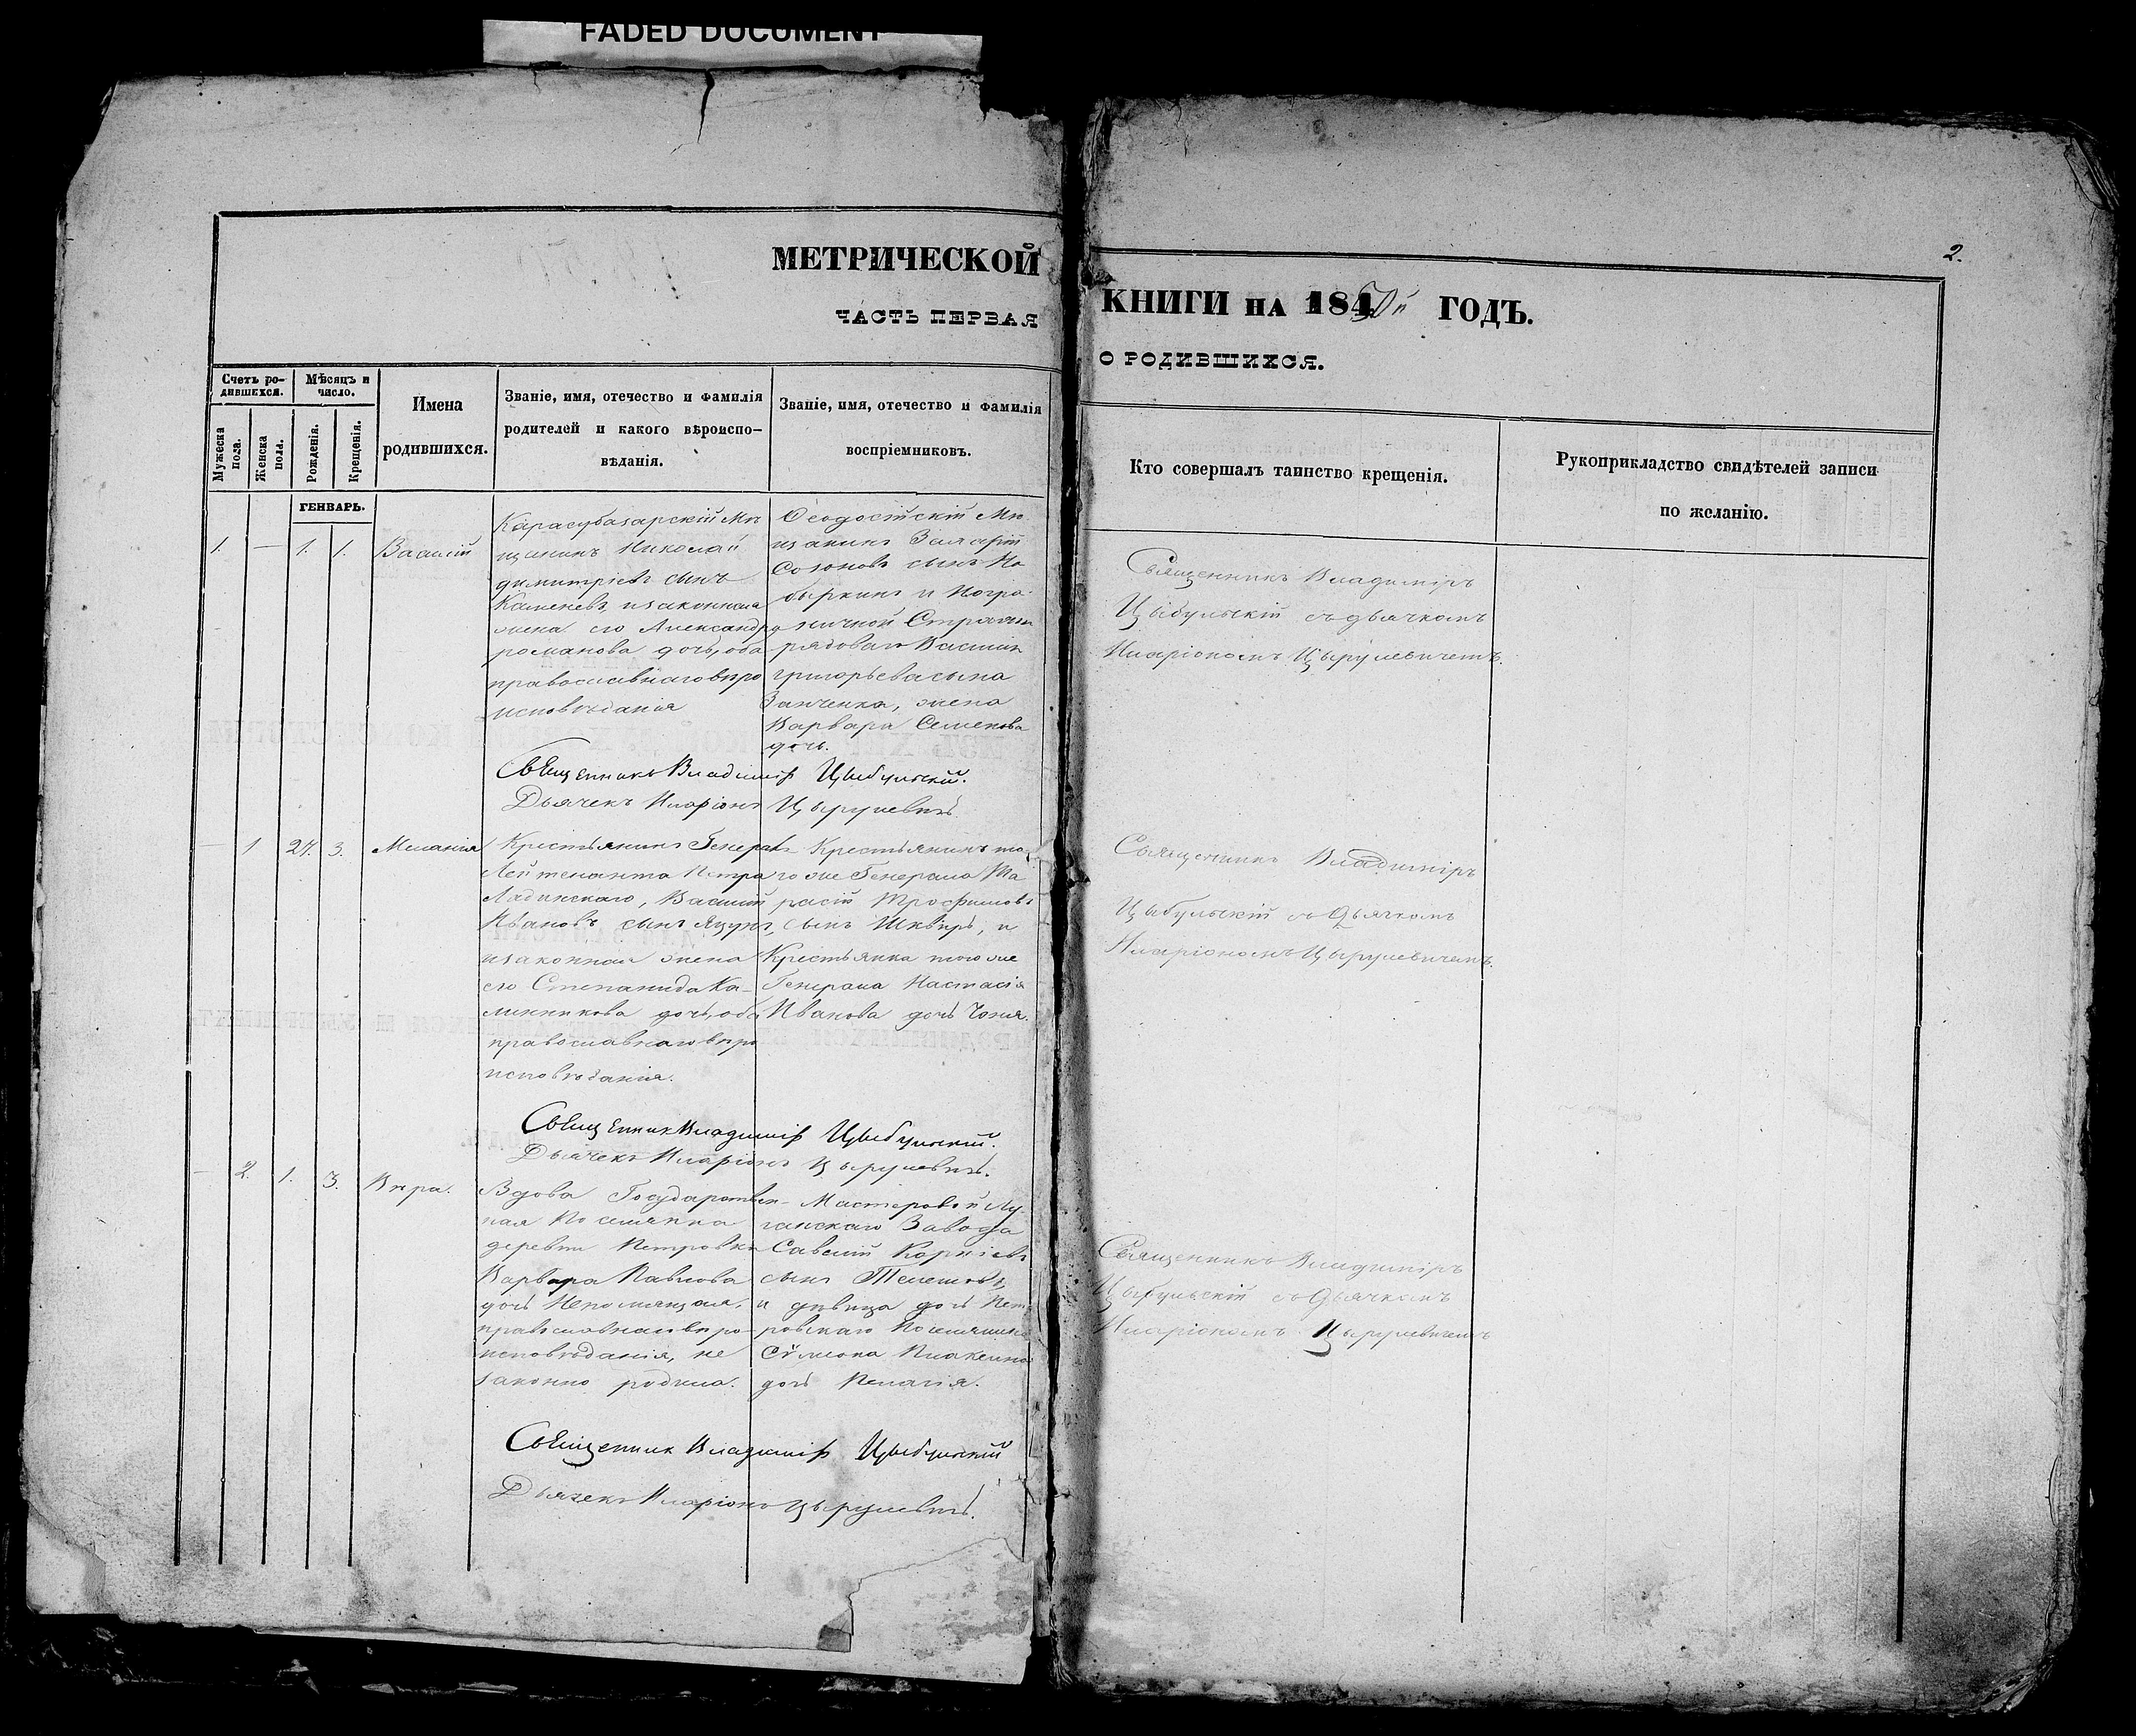 FADED DOCUMENT
МЕТРИЧЕСКОЙ
ЧАСТЬ ПЕРВАЯ
Счетъ ро-
дившихся.
Мѣсяцъ и
число.
Мужеска
пола.
Женска
пола.
Рожденія.
Крещенія.
Имена
родившихся.
Званіе, имя, отечество и фамилія
родителей и какого вѣроиспо-
вѣданія.
Званіе, имя, отечество и фамилія
воспріемниковъ.
ГЕНВАРЬ.
1. — 1. 1. Василій
Карасубазарскій Мѣ
щанинъ Николай
димитріевъ сынъ
Каменевъ, и законная
жена его Александра
романова дочь, оба
православнаго вѣро
исповѣданія
Ѳеодосійскій Мѣ
щанинъ
Созоновъ сынъ
и Погра-
ничной Стражи
рядоваго Василія
григорьева сына
Занченка, жена
Варвара Семенова
дочь.
Священникъ Владиміръ Цыбульскій.
Дьячекъ Иларіонъ Цырулевичъ
— 1 27. 3. Меланія
Крестьянинъ Генералъ
Лейтенанта Петра
Ладинскаго, Василій
Ивановъ сынъ Яцунъ,
и законная жена
его Степанида Ка-
линникова дочь, оба
православнаго вѣро
исповѣданія.
Крестьянинъ то
го же Генерала Та
расій Трофимовъ
сынъ Шквиръ, и
Крестьянка того же
Генерала Настасія
Иванова дочь Чоня.
Священникъ Владиміръ Цыбульскій.
Дьячекъ Иларіонъ Цырулевичъ.
— 2. 1. 3. Вѣра.
Вдова Государствен-
ная Поселянка
деревни Петровки
Варвара Павлова
дочь Непомнящая,
православнаго вѣро-
исповѣданія, не
законно родила.
Мастеровой Лу-
ганскаго Завода
Савелій Корніевъ
сынъ Телешовъ,
и дѣвица дочь Пет
ровскаго Поселянина
Сѵмеона
дочь Пелагія.
Священникъ Владиміръ Цыбульскій
Дьячекъ Иларіонъ Цырулевичъ.
2.
КНИГИ НА 1850й ГОДЪ.
О РОДИВШИХСЯ.
Кто совершалъ таинство крещенія.
Рукоприкладство свидѣтелей записи
по желанію.
Священникъ Владиміръ
Цыбульскій съ дьячкомъ
Иларіономъ Цырулевичемъ.
Священникъ Владиміръ
Цыбульскій съ Дьячкомъ
Иларіономъ Цырулевичемъ.
Священникъ Владиміръ
Цыбульскій съ Дьячкомъ
Иларіономъ Цырулевичемъ